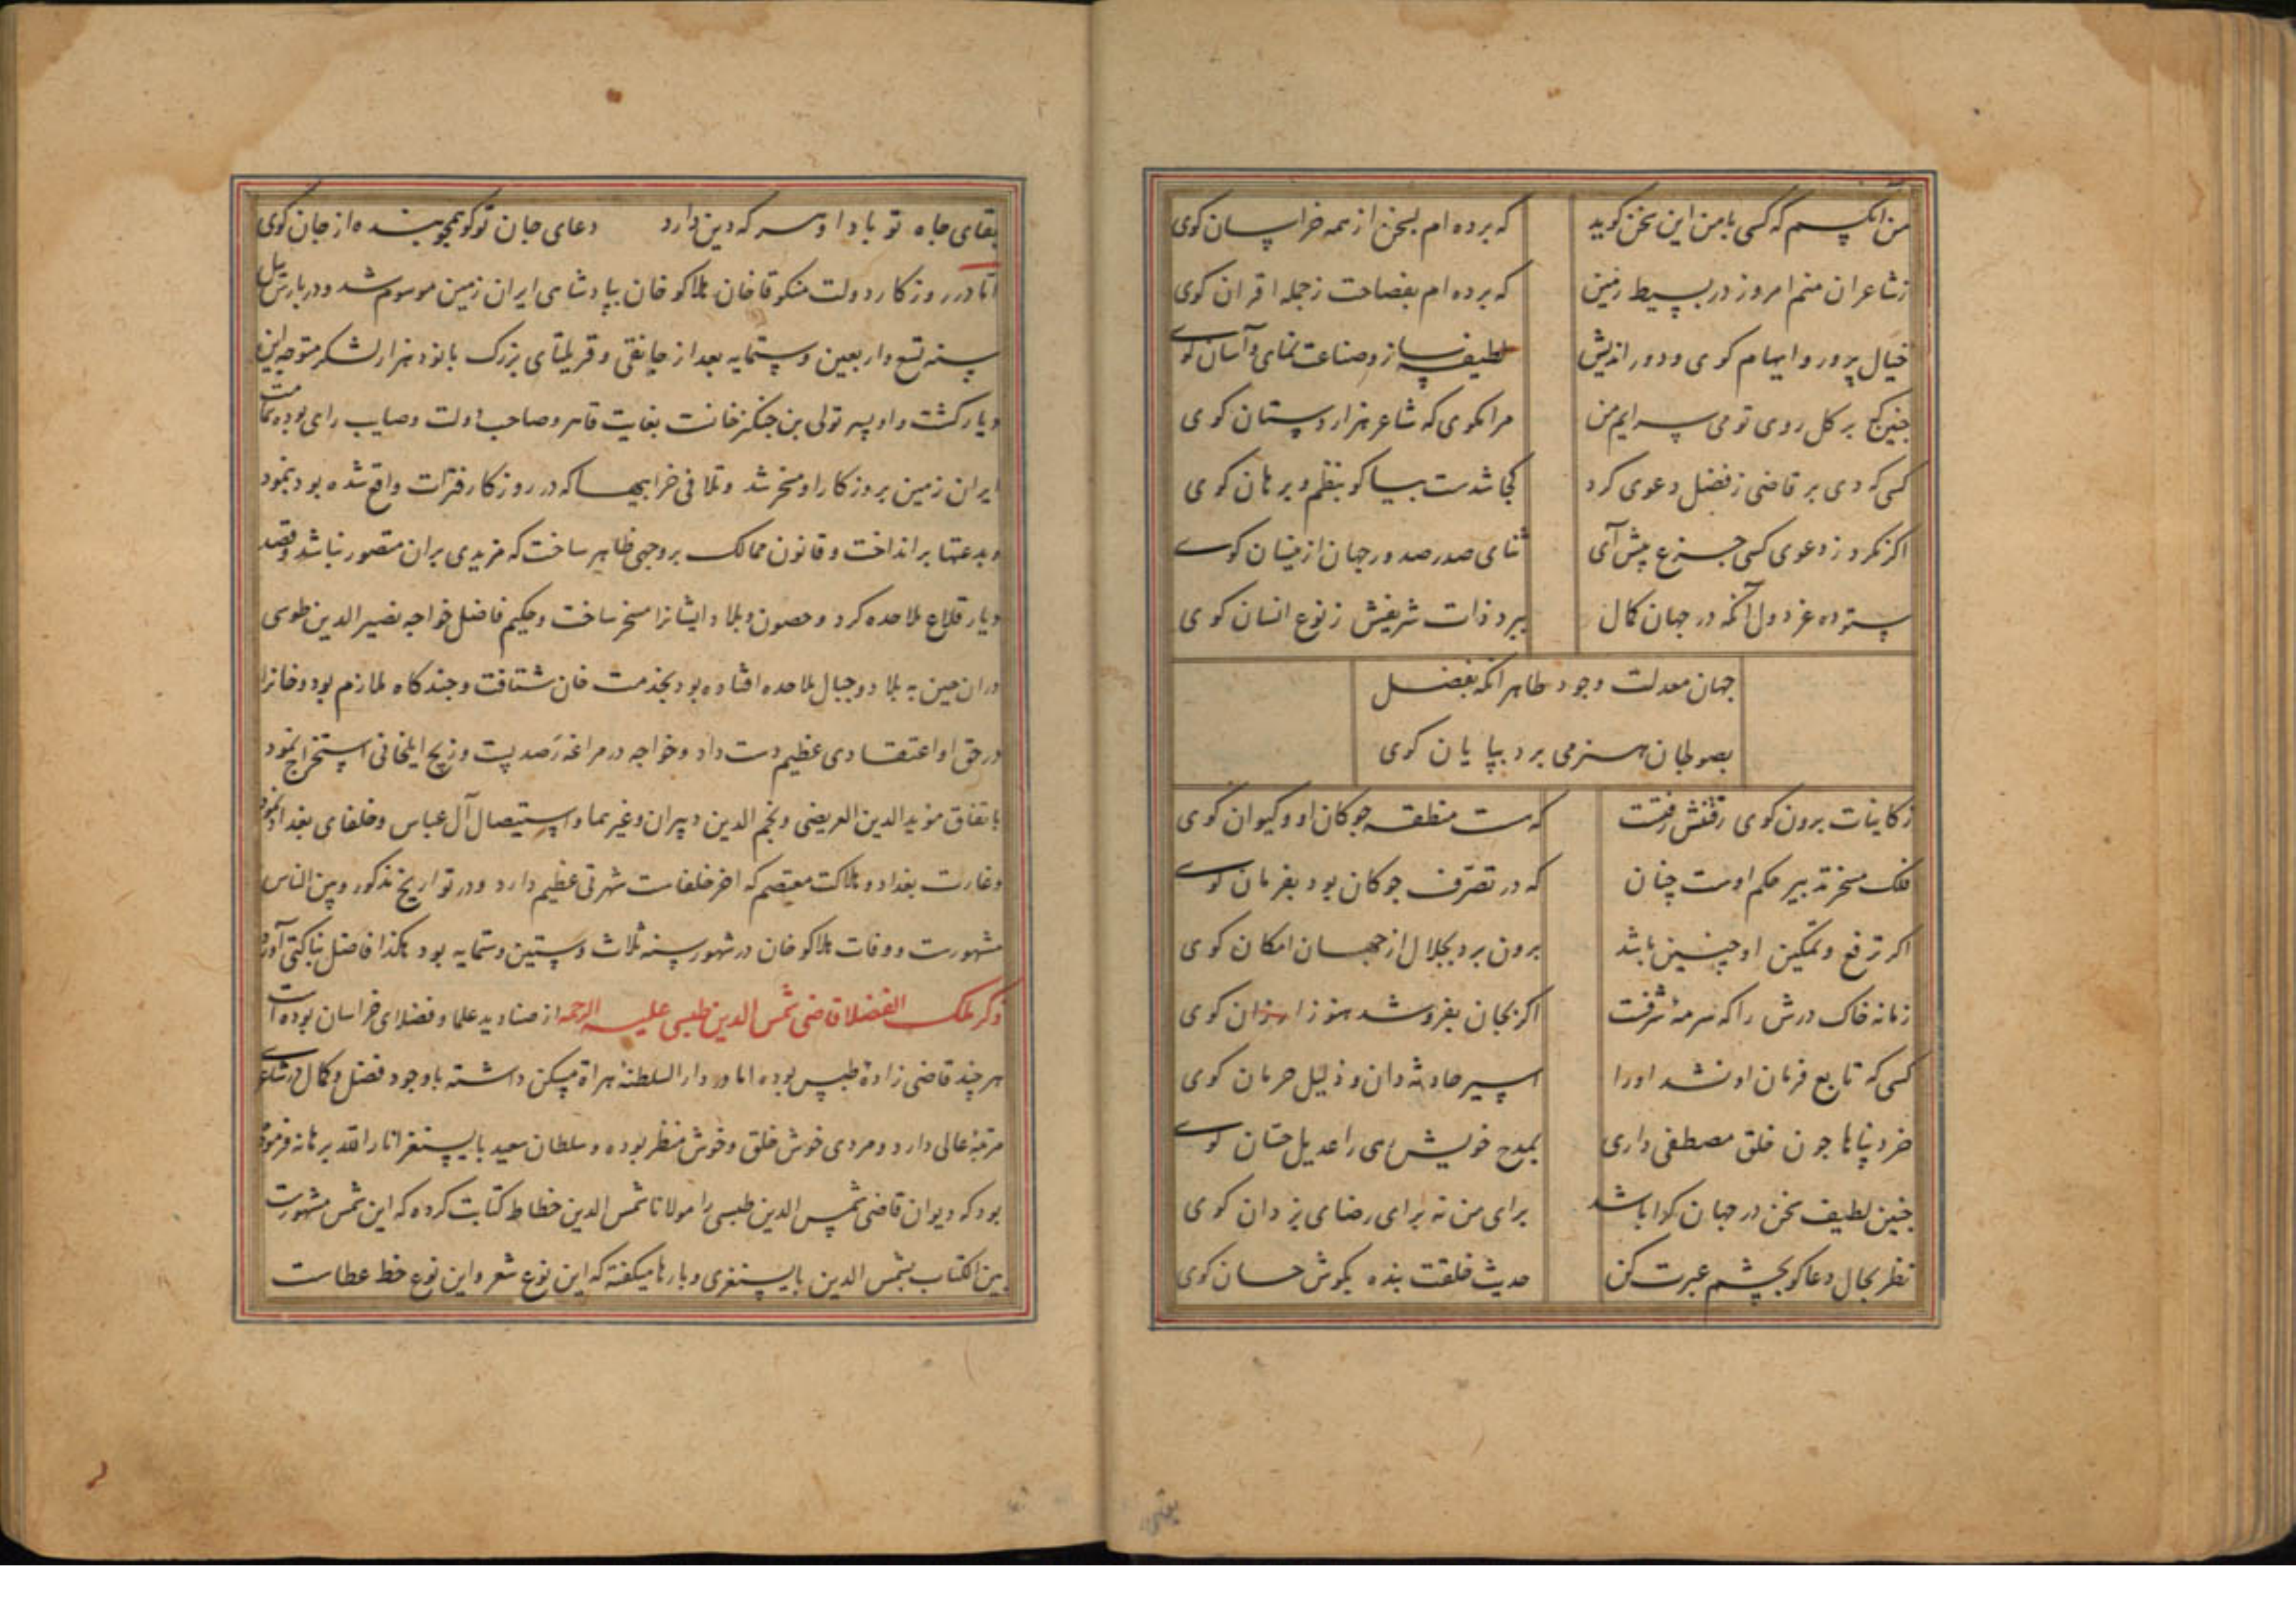 من آنکسم که کسی با من این سخن کوید که برده ام بسخن از همه خراسان کوی
زشاعران منم امروز در بسیط زمین که برده ام بفصاحت زجمله اقران کوی
خیال پرور و ایهام کوی و دور اندیش لطیفه ساز و صناعت نمای و آسان کوی
بر کل روی تو می سرایم من مرا مکوی که شاعر هزار دستان کوی
کسی که دی بر قاضی زفضل دعوی کرد کجا شدست بیا کو بنظم و برهان کوی
اکر نکرد زدعوی کسی جزع پیش آی ثنای صدر صدور جهان ازینسان کوی
ستوده عز دول آنکه در جهان کمال ببرد ذات شریفش زنوع انسان کوی
جهان معدلت وجود طاهر آنکه بفضل
بصولجان هنر می برد بپایان کوی
زکاینات برون کوی رفعتش رفتست که هست منطقه جوکان او و کیوان کوی
فلک مسخر تدبیر حکم اوست چنان که در تصرف جوکان بود بفرمان کوی
اکر ترفع و تمکین او چنین باشد برون برد بجلال از جهان امکان کوی
زمانه خاک درش را که سرمهٔ شرفت اکر بجان بفروشد هنوز ارزان کوی
کسی که تابع فرمان او نشد او را اسیر حادثه دان و ذلیل حرمان کوی
خرد پناها جون خلق مصطفی داری بمدح خویش رهی را عدیل حسان کوی
جنین لطیف سخن در جهان کرا باشد برای من نه برای رضای یزدان کوی
نظر بحال دعاکو بچشم عبرت کن حدیث خلقت بنده بکوش حسان کوی
بقای جاه تو بادا و هر که دین دارد دعای جان تو کو همچو بنده از جان کوی
اما در روزکار دولت منکوقاخان هلاکو خان بپادشاهی ایران زمین موسوم شد و در بارس ئیل
سنه تسع و اربعین و ستمایه بعد از جانقی و قریلتای بزرک با نود هزار لشکر متوجه این
دیار کشت و او پسر تولی بن جنکزخانست بغایت قاهر و صاحب دولت و صایب رای بوده تمامت
ایران زمین بروزکار او مسخر شد و تلافی خرابیها که در روزکار فترات واقع شده بود بنمود
و بدعتها برانداخت و قانون ممالک بر وجهی ظاهر ساخت که مزیدی بران متصور نباشد و قصد
دیار قلاع ملاحده کرد و حصون و بلاد ایشانرا مسخر ساخت و حکیم فاضل خواجه نصیر الدین طوسی
دران حین به بلاد و جبال ملاحده افتاده بود بخدمت خان شتافت و جند کاه ملازم بود و خانرا
در حق او اعتقادی عظیم دست داد و خواجه در مراغه رصد بست و زیج ایلخانی استخراج نمود
باتفاق موید الدین العریضی و نجم الدین دبیران و غیرهما و استیصال آل عباس و خلفای بغداد نمود
و غارت بغداد و هلاکت معتصم که اخر خلفاست شهرتی عظیم دارد و در تواریخ مذکور و بین الناس
مشهورست و وفات هلاکو خان در شهور سنه ثلاث و ستین و ستمایه بود هکذا فاضل بناکتی آورده
ذکر ملک الفضلا قاضی شمس الدین طبسی علیه الرحمه از صنادید علما و فضلای خراسان بوده است
هر چند قاضی زادهٔ طبس بوده اما در دار السلطنهٔ هراة مسکن داشته باوجود فضل و کمال در شاعری
مرتبهٔ عالی دارد و مردی خوش خلق و خوش منظر بوده و سلطان سعید بایسنغر انار الله برهانه فرموده
بود که دیوان قاضی شمس الدین طبسی را مولانا شمس الدین خطاط کتابت کرده که این شمس مشهورست
بین الکتاب بشمس الدین بایسنغری و بارها میکفته که این نوع شعر و این نوع خط عطاست